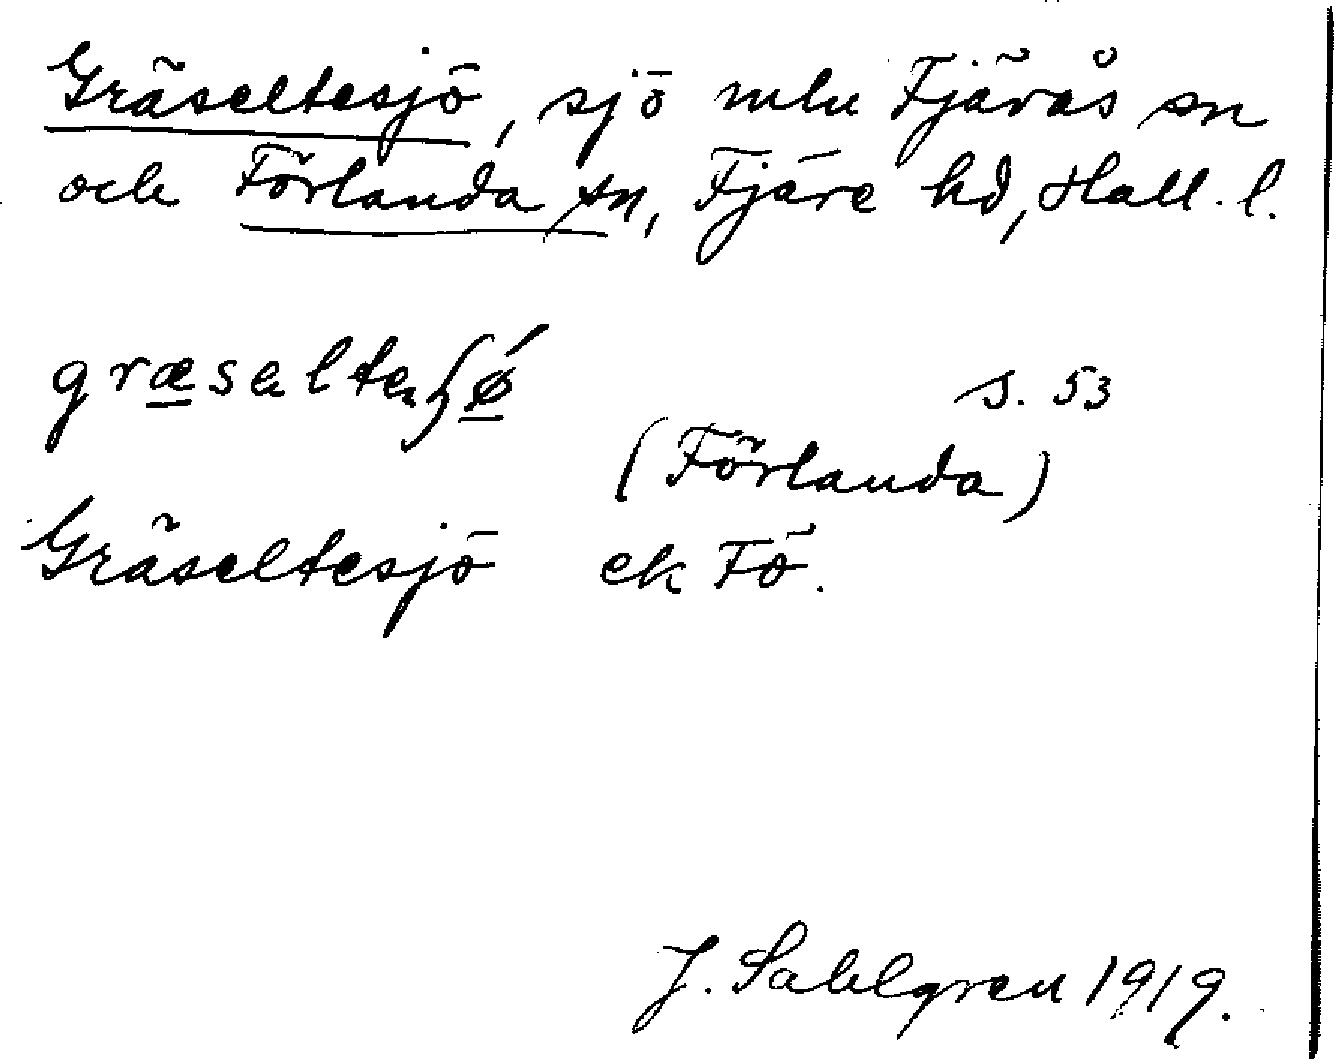 Gräseltesjö, sjö mln Fjärås sn
och Förlanda sn, Fjäre hd, Hall. l.
græselteʃǿ s. 53
(Förlanda)
Gräseltesjö ek Fö.
J. Sahlgren 1919.